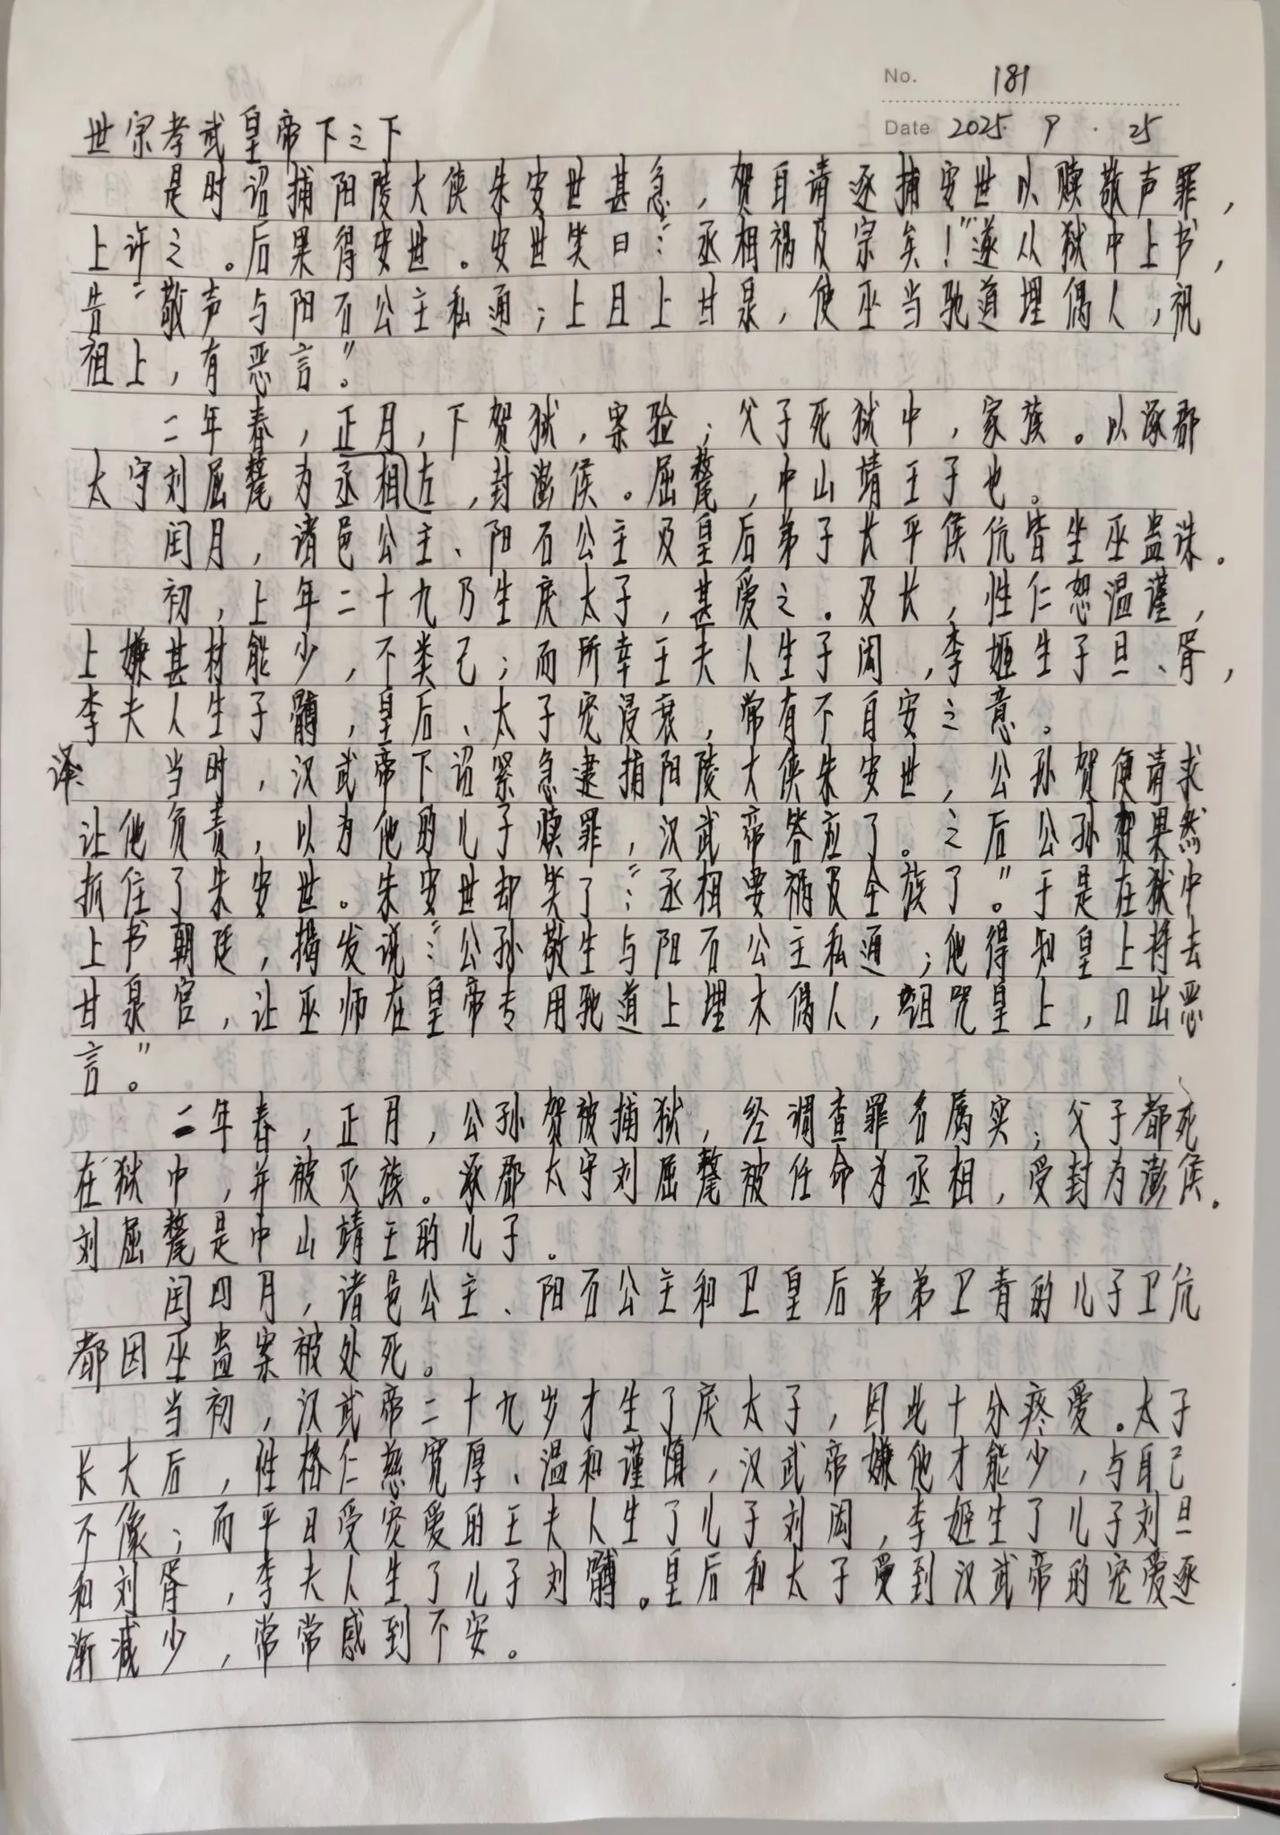 No. 181
Date 2025. 9. 25
世宗孝武皇帝下之下
是时诏捕阳陵大侠朱安世甚急，贺自请逐捕安世以赎敬声罪，
上许之。后果得安世。安世笑曰：“丞相祸及宗矣！”遂从狱中上书，
告“敬声与阳石公主私通；上且上甘泉，使巫当驰道埋偶人，祝
祖上，有恶言。”
二年春，正月，下贺狱，案验；父子死狱中，家族。以涿郡
太守刘屈氂为丞相左，封澎侯。屈氂，中山靖王子也。
闰月，诸邑公主、阳石公主及皇后弟子长平侯伉皆坐巫蛊诛。
初，上年二十九乃生戾太子，甚爱之。及长，性仁恕温谨，
上嫌其材能少，不类己；而所幸王夫人生子闳，李姬生子旦、胥，
李夫人生子髆，皇后、太子宠浸衰，常有不自安之意。
译：当时，汉武帝下诏紧急逮捕阳陵大侠朱安世，公孙贺便请求
让他负责，以为他的儿子赎罪，汉武帝答应了。之后公孙贺果然
抓住了朱安世。朱安世却笑了：“丞相要祸及全族了”。于是在狱中
上书朝廷，揭发说：“公孙敬生与阳石公主私通；他得知皇上将去
甘泉宫，让巫师在皇帝专用驰道上埋木偶人，诅咒皇上，口出恶
言。”
二年春，正月，公孙贺被捕狱，经调查罪名属实；父子都死
在狱中，并被灭族。涿郡太守刘屈氂被任命为丞相，受封为澎侯。
刘屈氂是中山靖王的儿子。
闰四月，诸邑公主、阳石公主和卫皇后弟弟卫青的儿子卫伉
都因巫蛊案被处死。
当初，汉武帝二十九岁才生了戾太子，因此十分疼爱。太子
长大后，性格仁慈宽厚、温和谨慎，汉武帝嫌他才能少，与自己
不像；而平日受宠爱的王夫人生了儿子刘闳，李姬生了儿子刘旦
和刘胥，李夫人生了儿子刘髆。皇后和太子受到汉武帝的宠爱逐
渐减少，常常感到不安。